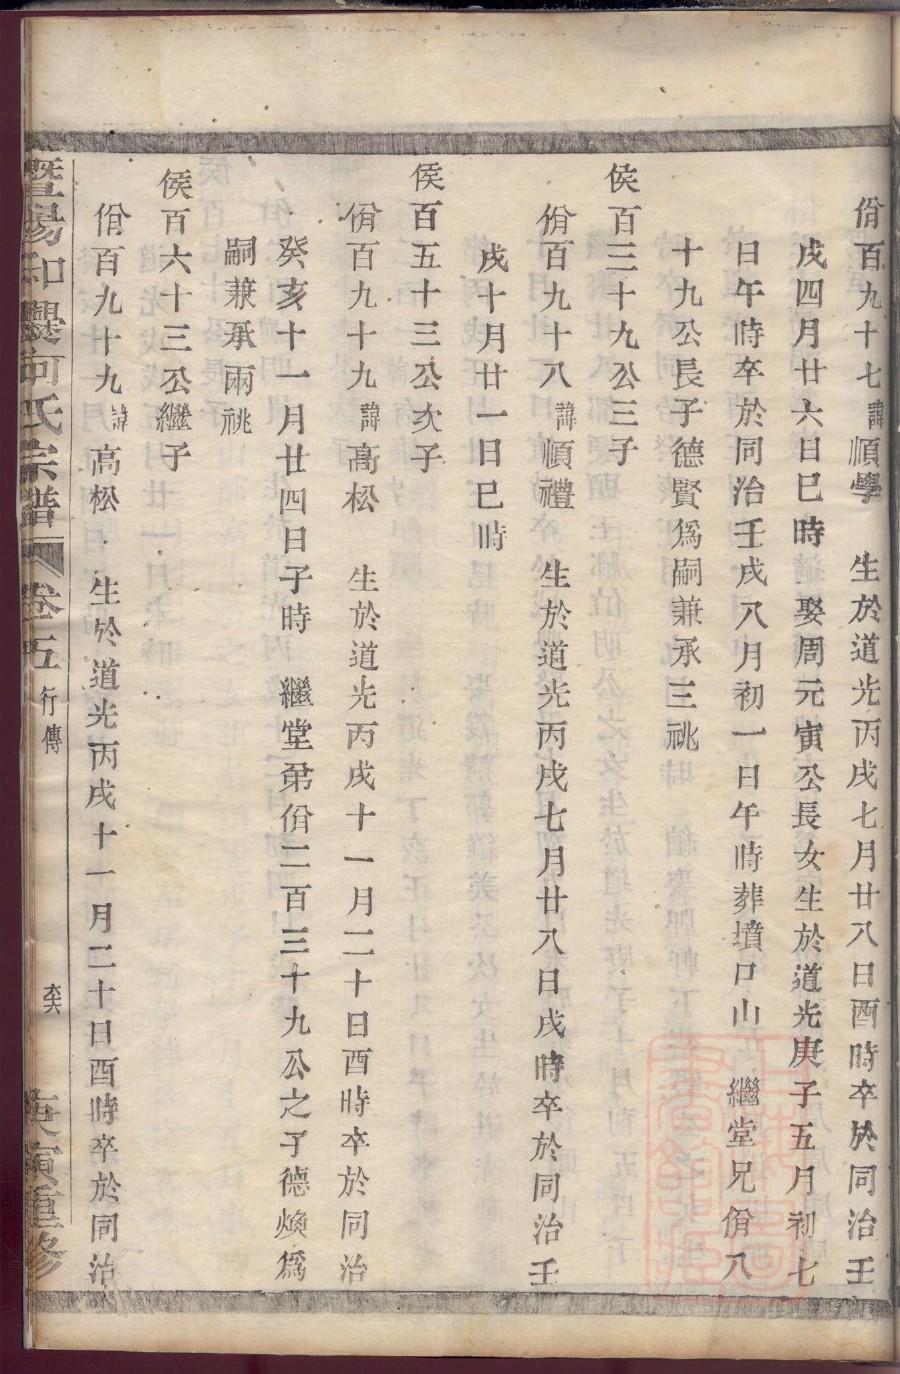 佾百九十七諱順學 生於道光丙戌七月廿八日酉時卒於同治壬
戌四月廿六日巳時 娶周元寅公長女生於道光庚子五月初七
日午時卒於同治壬戌八月初一日午時葬墳口山 繼堂兄佾八
十九公長子德賢爲嗣兼承三祧
侯百三十九公三子
佾百九十八諱順禮 生於道光丙戌七月廿八日戌時卒於同治壬
戌十月廿一日巳時
侯百五十三公次子
佾百九十九諱高松 生於道光丙戌十一月二十日酉時卒於同治
癸亥十一月廿四日子時 繼堂弟佾二百三十九公之子德煥爲
嗣兼承兩祧
侯百六十三公繼子
佾百九十九諱高松 生於道光丙戌十一月二十日酉時卒於同治
暨陽和興何氏宗譜 卷五 行傳 庚寅重修